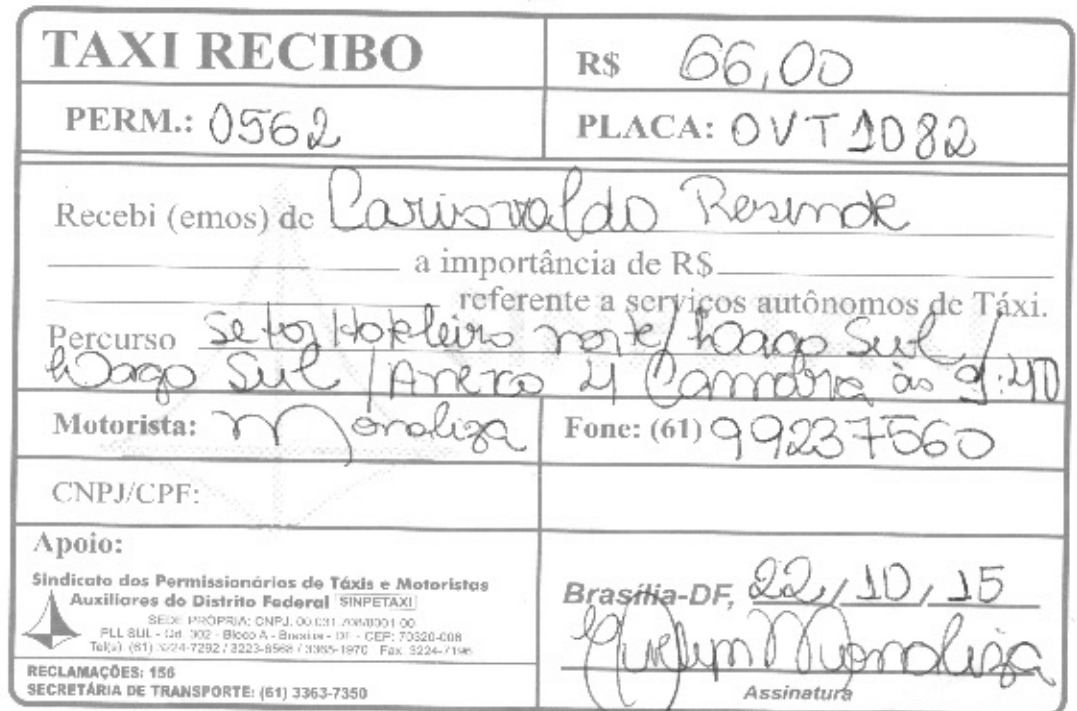 TAXI RECIBO
R$ 66,00
PERM.: 0562
PLACA: OVT 1082
Recebi (emos) de Carisvaldo Resende
a importância de R$
referente a serviços autônomos de Táxi.
Percurso Setor Hoteleiro norte/Lago Sul/
Lago Sul / Anexo 4 Camara às 9:40
Motorista: Monaliza
Fone: (61) 99237560
CNPJ/CPF:
Apoio:
Sindicato dos Permissionários de Táxis e Motoristas
Auxiliares do Distrito Federal SINPETAXI
SEDE PRÓPRIA: CNPJ.
PLL SUL - Qd. 302 - Bloco A - Brasília - DF - CEP: 70320-008
Tel(s): (61) 3224-7292 / 3223-8568 / 3365-1970 Fax: 3224-7196
RECLAMAÇÕES: 156
SECRETÁRIA DE TRANSPORTE: (61) 3363-7350
Brasília-DF, 22/10/15
Monaliza
Assinatura